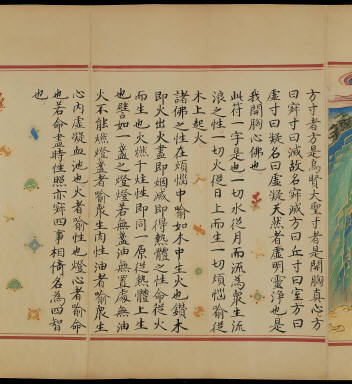 方寸者方是烏賢大聖寸者是開胸真心方
曰寂寸曰滅故名寂滅方曰丘寸曰室方曰
虛寸曰凝名曰虛凝天然者虛明靈淨也是
我開胸心佛也
此符一字是也一切水從月而流為眾生流
浪之性一切火從日上而生一切煩惱喻從
木上起火
諸佛之性在煩惱中喻如木中生火也鑽木
即火出火盡即烟滅即得熱體之性命從火
而生也火燃一炷性即同一原從熱體上生
也譬如一盞之燈燈若無盞油無置處無油
火不能燃燈盞者喻眾生肉性油者喻眾生
心內虛凝血池也火者喻性也燈心者喻命
也若命盡時性照亦寂四事相倚名為四智
也